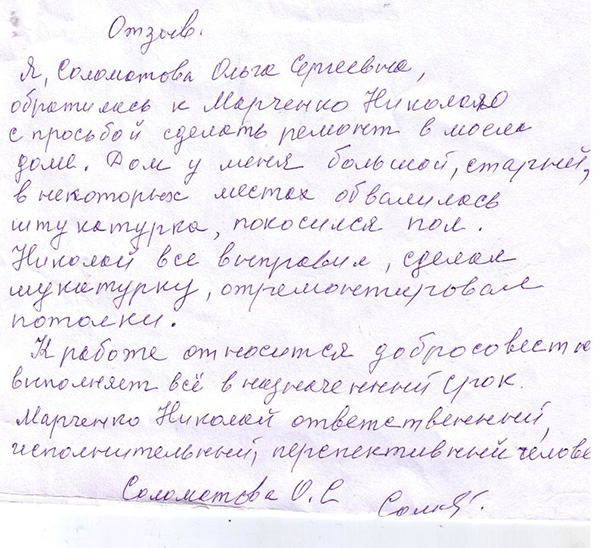 Отзыв.
Я, Соломатова Ольга Сергеевна,
обратилась к Марченко Николаю
с просьбой сделать ремонт в моем
доме. Дом у меня большой, старый,
в некоторых местах обвалилась
штукатурка, покосился пол.
Николай все выправил, сделал
шукатурку, отремонтировал
потолки.
К работе относится добросовестно
выполняет всё в назначенный срок.
Марченко Николай ответственный,
исполнительный, перспективный челове
Соломатова О.С